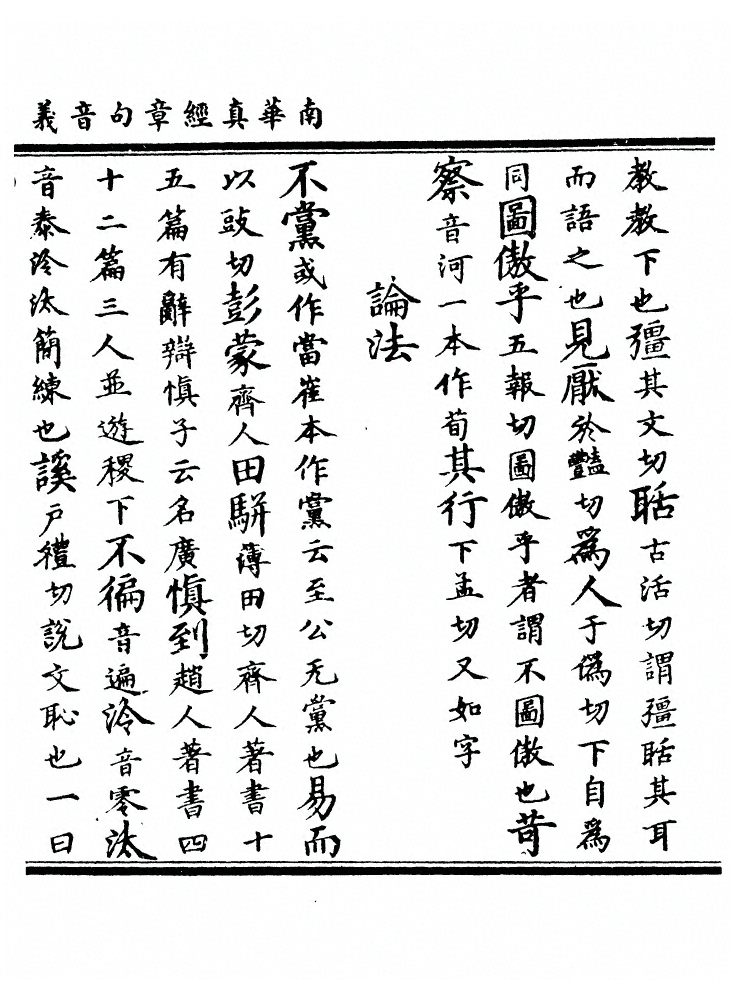 南華真經章句音義
教教下也彊其文切聒古活切謂彊聒其耳
而語之也見厭於豔切爲人于僞切下自爲
同圖傲乎五報切圖傲乎者謂不圖傲也苛
察音河一本作苟其行下孟切又如字
論法
不黨或作當崔本作黨云至公无黨也易而
以豉切彭蒙齊人田駢薄田切齊人著書十
五篇有辭辯慎子云名廣慎到趙人著書四
十二篇三人並遊稷下不徧音遍泠音零汰
音泰泠汰簡練也謑戶禮切說文恥也一曰